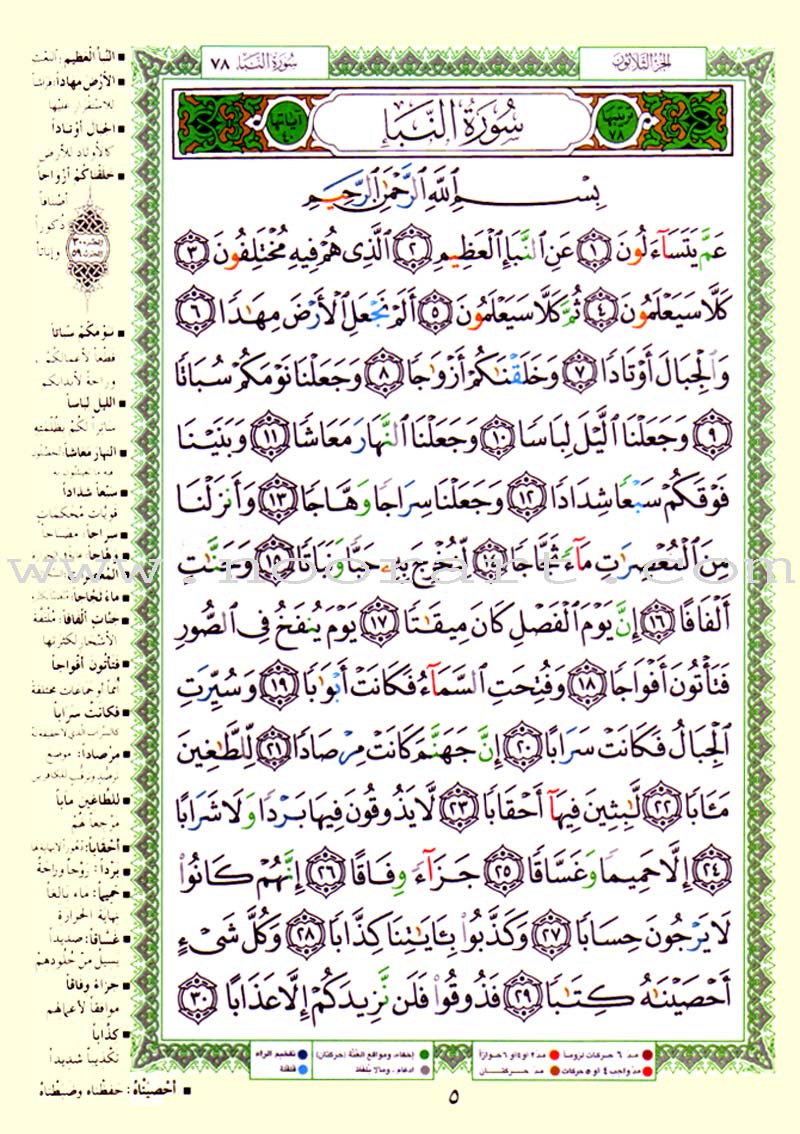 الجزء الثلاثون
سورة النبأ ٧٨
ترتيبها ٧٨
سُورَةُ النَّبَإِ
آياتها ٤٠
بِسْمِ ٱللَّهِ ٱلرَّحْمَٰنِ ٱلرَّحِيمِ
عَمَّ يَتَسَآءَلُونَ ١ عَنِ ٱلنَّبَإِ ٱلْعَظِيمِ ٢ ٱلَّذِى هُمْ فِيهِ مُخْتَلِفُونَ ٣
كَلَّا سَيَعْلَمُونَ ٤ ثُمَّ كَلَّا سَيَعْلَمُونَ ٥ أَلَمْ نَجْعَلِ ٱلْأَرْضَ مِهَٰدًا ٦
وَٱلْجِبَالَ أَوْتَادًا ٧ وَخَلَقْنَٰكُمْ أَزْوَٰجًا ٨ وَجَعَلْنَا نَوْمَكُمْ سُبَاتًا
٩ وَجَعَلْنَا ٱلَّيْلَ لِبَاسًا ١٠ وَجَعَلْنَا ٱلنَّهَارَ مَعَاشًا ١١ وَبَنَيْنَا
فَوْقَكُمْ سَبْعًا شِدَادًا ١٢ وَجَعَلْنَا سِرَاجًا وَهَّاجًا ١٣ وَأَنزَلْنَا
مِنَ ٱلْمُعْصِرَٰتِ مَآءً ثَجَّاجًا ١٤ لِّنُخْرِجَ بِهِۦ حَبًّا وَنَبَاتًا ١٥ وَجَنَّٰتٍ
أَلْفَافًا ١٦ إِنَّ يَوْمَ ٱلْفَصْلِ كَانَ مِيقَٰتًا ١٧ يَوْمَ يُنفَخُ فِى ٱلصُّورِ
فَتَأْتُونَ أَفْوَاجًا ١٨ وَفُتِحَتِ ٱلسَّمَآءُ فَكَانَتْ أَبْوَٰبًا ١٩ وَسُيِّرَتِ
ٱلْجِبَالُ فَكَانَتْ سَرَابًا ٢٠ إِنَّ جَهَنَّمَ كَانَتْ مِرْصَادًا ٢١ لِّلطَّٰغِينَ
مَـَٔابًا ٢٢ لَّٰبِثِينَ فِيهَآ أَحْقَابًا ٢٣ لَّا يَذُوقُونَ فِيهَا بَرْدًا وَلَا شَرَابًا
٢٤ إِلَّا حَمِيمًا وَغَسَّاقًا ٢٥ جَزَآءً وِفَاقًا ٢٦ إِنَّهُمْ كَانُوا۟
لَا يَرْجُونَ حِسَابًا ٢٧ وَكَذَّبُوا۟ بِـَٔايَٰتِنَا كِذَّابًا ٢٨ وَكُلَّ شَىْءٍ
أَحْصَيْنَٰهُ كِتَٰبًا ٢٩ فَذُوقُوا۟ فَلَن نَّزِيدَكُمْ إِلَّا عَذَابًا ٣٠
النَّبأ العَظيم
الأرْضَ مهاداً
للاستقرار عليْها
الجبال أوْتاداً
كالأوتاد للأرض
خلقناكُمْ أزْواجاً
أصْنافاً
ذُكوراً
وإناثاً
نَوْمكُمْ سُباتاً
قطْعاً لأعمالكُمْ،
وراحةً لأبْدانكم
الليل لباساً
ساتراً لكُمْ بظُلْمته
النهار معاشاً
سبْعاً شداداً
قويّات مُحكمات
سراجاً: مصْباحاً
وهّاجاً
ماءً ثجّاجاً
جنّات ألْفافاً: مُلْتفّة
الأشْجار لكثْرتها
فتأتون أفْواجاً
أُمماً أو جماعات مختلفة
فكانتْ سَراباً
مرْصاداً: موْضع
للطّاغين مآباً
مَرْجعاً لهُمْ
أحْقاباً
برْداً: رَوْحاً وراحةً
حَميماً: ماءً بالغاً
نهاية الحرارة
غسّاقاً: صديداً
يسيلُ من جُلُودهمْ
جزاءً وفاقاً
مُوافقاً لأعمالهم
كذّاباً
تكْذيباً شديداً
أحْصيْناهُ: حفظْناه وضبطْناهُ
www.noorart.com
مد ٦ حركات لزوماً
مد ٢ أو ٤ أو ٦ جوازاً
إخفاء، ومواقع الغُنَّة (حركتان)
تفخيم الراء
مد واجب ٤ أو ٥ حركات
مد حركتان
ادغام، ومالا يُلفظ
قلقلة
٥